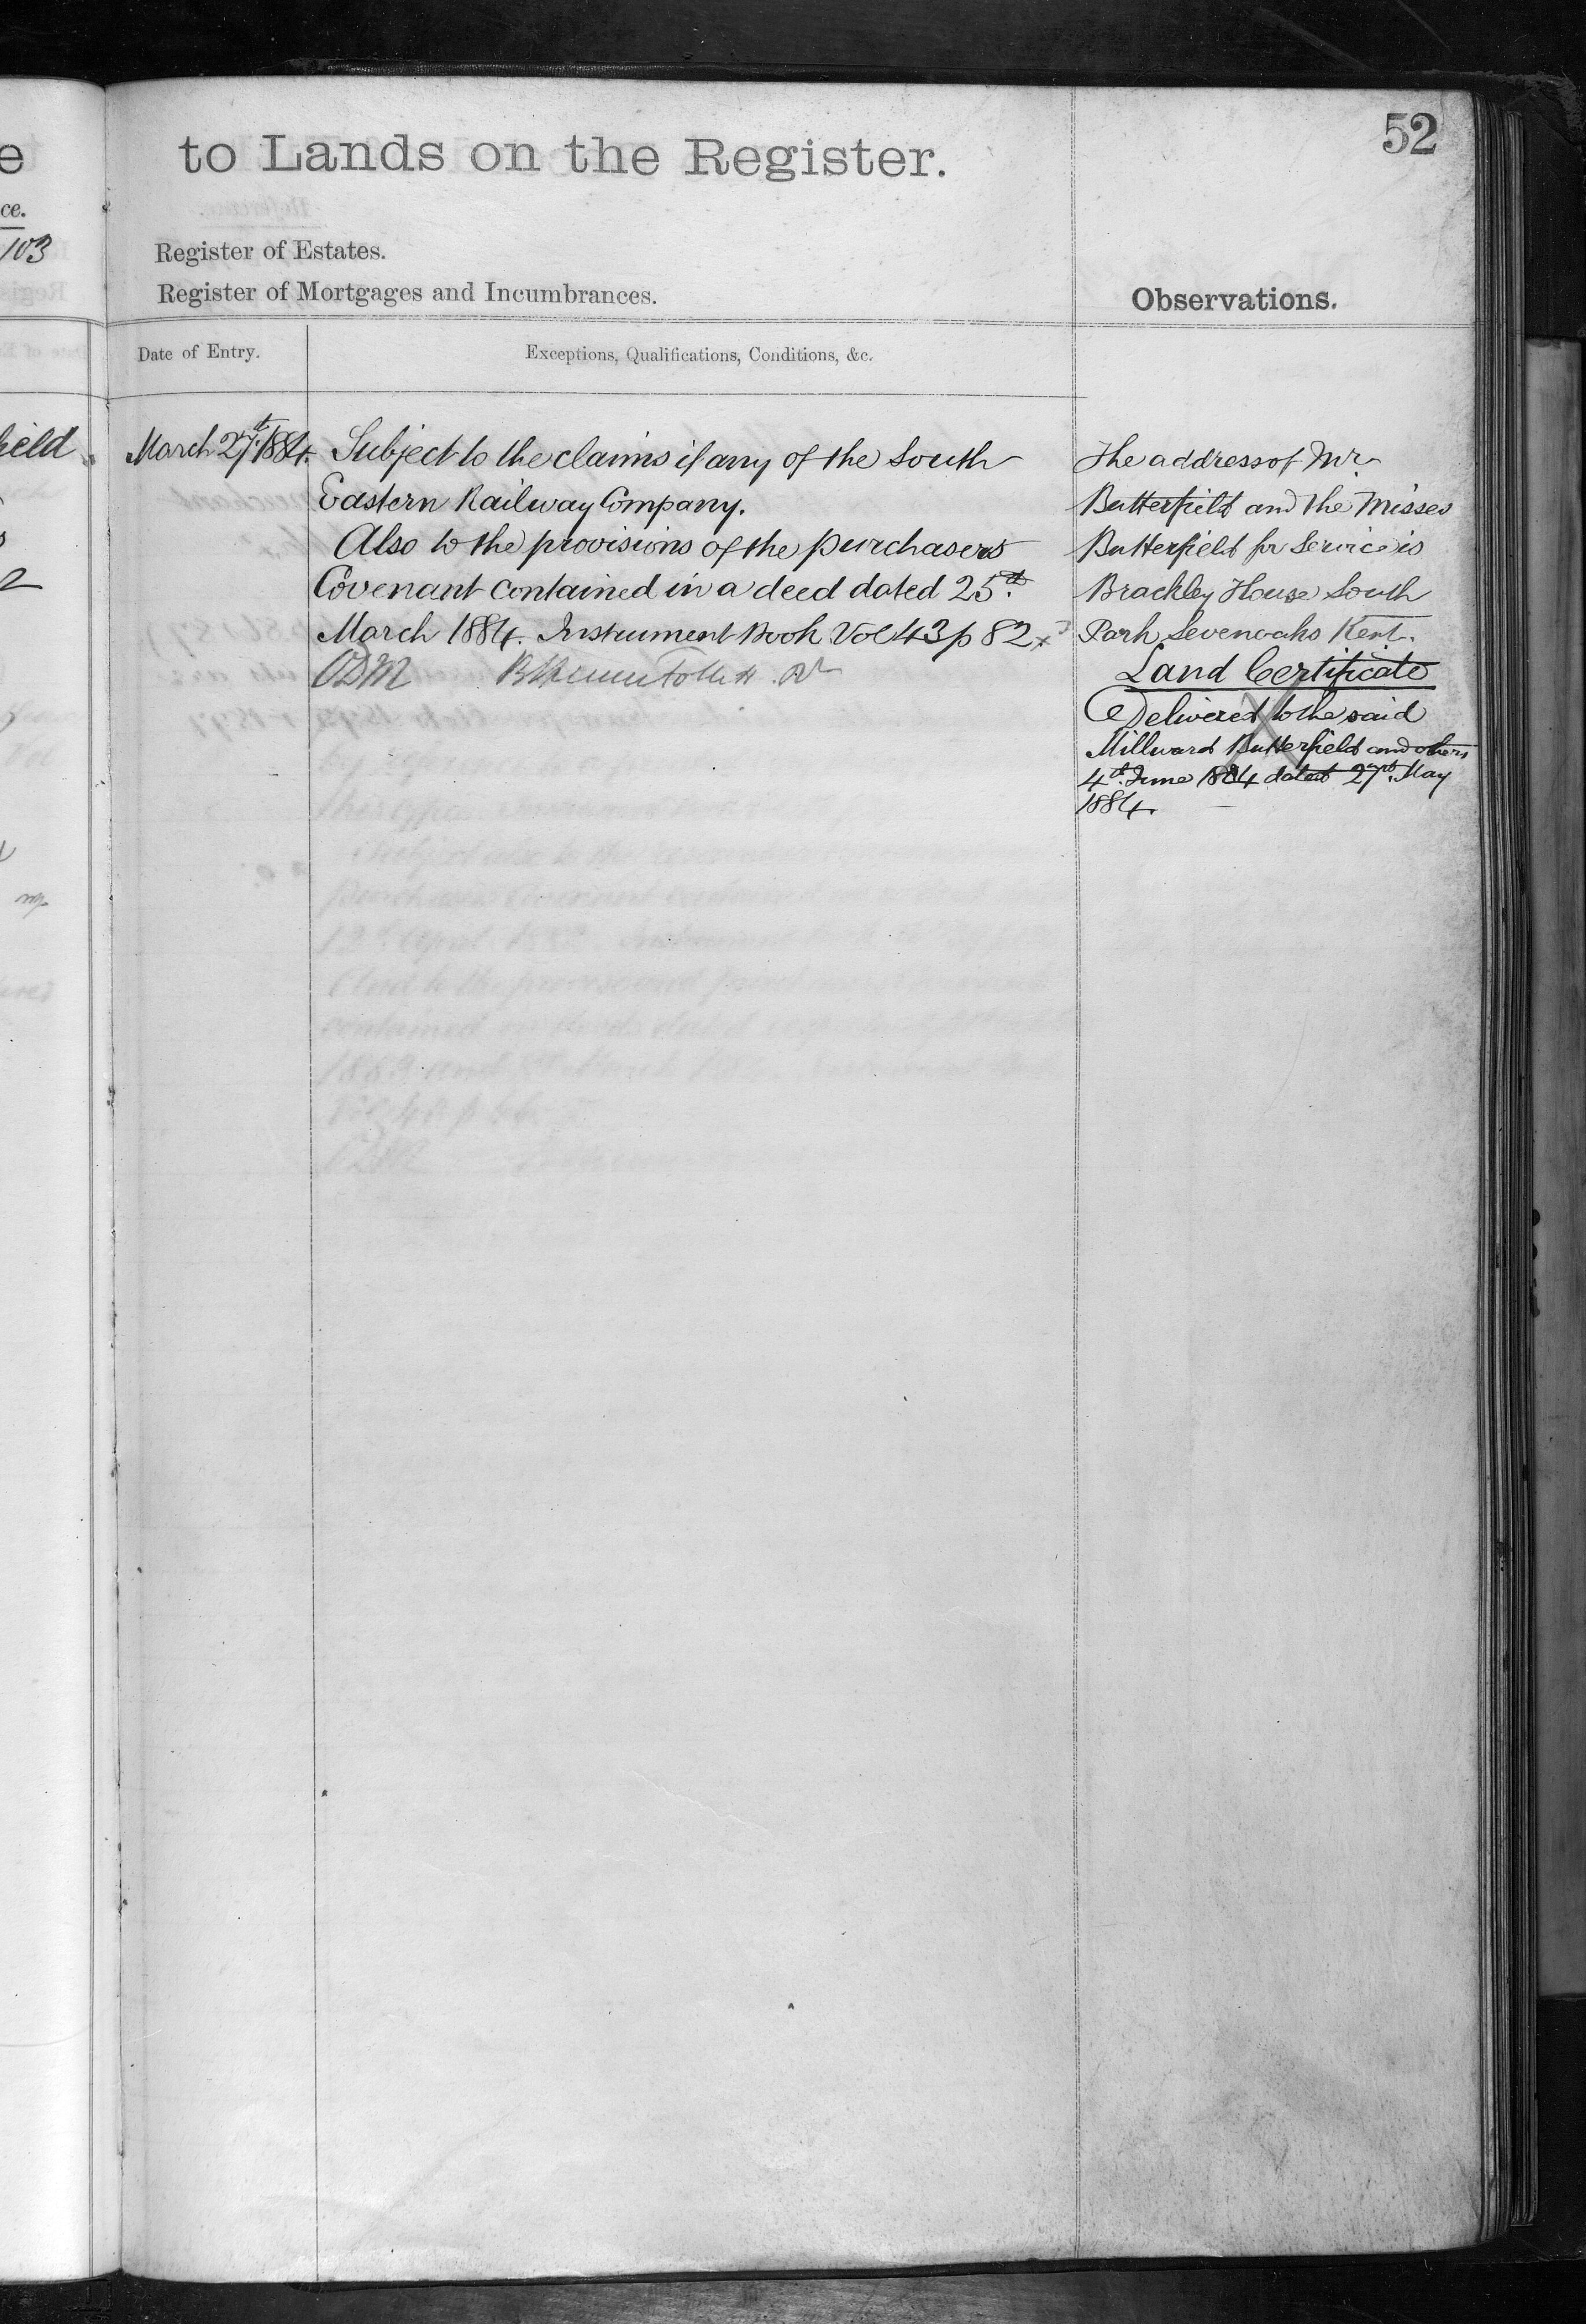 52
to Lands on the Register.
Register of Estates.
Register of Mortgages and Incumbrances.
Observations.
Date of Entry.
Exceptions, Qualifications, Conditions, &c.
March 27th 1884.
Subject to the claims if any of the South
Eastern Railway Company.
Also to the provisions of the purchasers
Covenant contained in a deed dated 25th
March 1884. Instrument Book Vol 43 p 82
The address of Mr
Butterfield and the Misses
Butterfield for Service is
Brackley House South
Park Sevenoaks Kent.
Land Certificate
Delivered to the said
Millward Butterfield and others
4th June 1884 dated 27th May
1884.
ce.
103
field